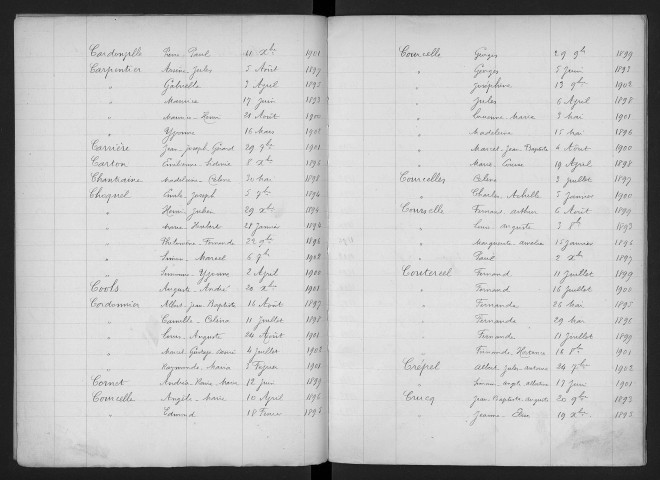 Cardonville Pierre Paul 21 Xbre 1901
Carpentier Jules 5 Août 1897
" Gabrielle 3 Avril 1895
" Maurice 17 Juin 1893
" Maurice Henri 21 Août 1900
" Yvonne 16 Mars 1902
Carrière Jean Joseph 29 9bre 1901
Carton 8 Xbre 1896
Chantraine Madeleine Céline 30 Mai 1898
Chequel Emile Joseph 5 7bre 1894
" Henri Julien 29 Xbre 1894
" Marie 21 Janvier 1894
" Philomène Fernande 22 9bre 1896
" Marcel 6 7bre 1902
" Yvonne 2 Avril 1900
Cools Auguste André 20 Xbre 1901
Cordonnier Albert Jean Baptiste 16 Août 1897
" Camille 11 Juillet 1898
" Louis Auguste 24 Août 1901
" Marcel Gustave 4 Juillet 1902
" Raymonde Maria 5 Février 1901
Cornet Andrée Marie 12 Juin 1899
Courcelle Angèle Marie 10 Avril 1896
" Edmond 18 Février 1896
Courcelle Georges 29 9bre 1899
" Georges 5 Juin 1893
" Joséphine 13 9bre 1902
" Jules 6 Avril 1898
" Maria 3 Mai 1901
" Madeleine 15 Mai 1896
" Marcel Jean Baptiste 4 Août 1900
" Marie Louise 19 Avril 1898
Courcelles Céline 3 Juillet 1897
" Charles Achille 5 Janvier 1900
Courselle Fernand Arthur 6 Août 1899
" Auguste 3 8bre 1893
" Marguerite 15 Janvier 1896
" Paul 2 Xbre 1897
Coutercel Fernand 11 Juillet 1899
" Fernand 16 Juillet 1900
" Fernande 26 Mai 1895
" Fernande 29 Mai 1896
" Fernande 21 Juillet 1899
" Fernande Hortense 16 8bre 1901
Crépel Albert Jules 24 7bre 1902
" 17 Juin 1901
Crucq Jean Baptiste Auguste 20 9bre 1893
" Jeanne 19 Xbre 1895